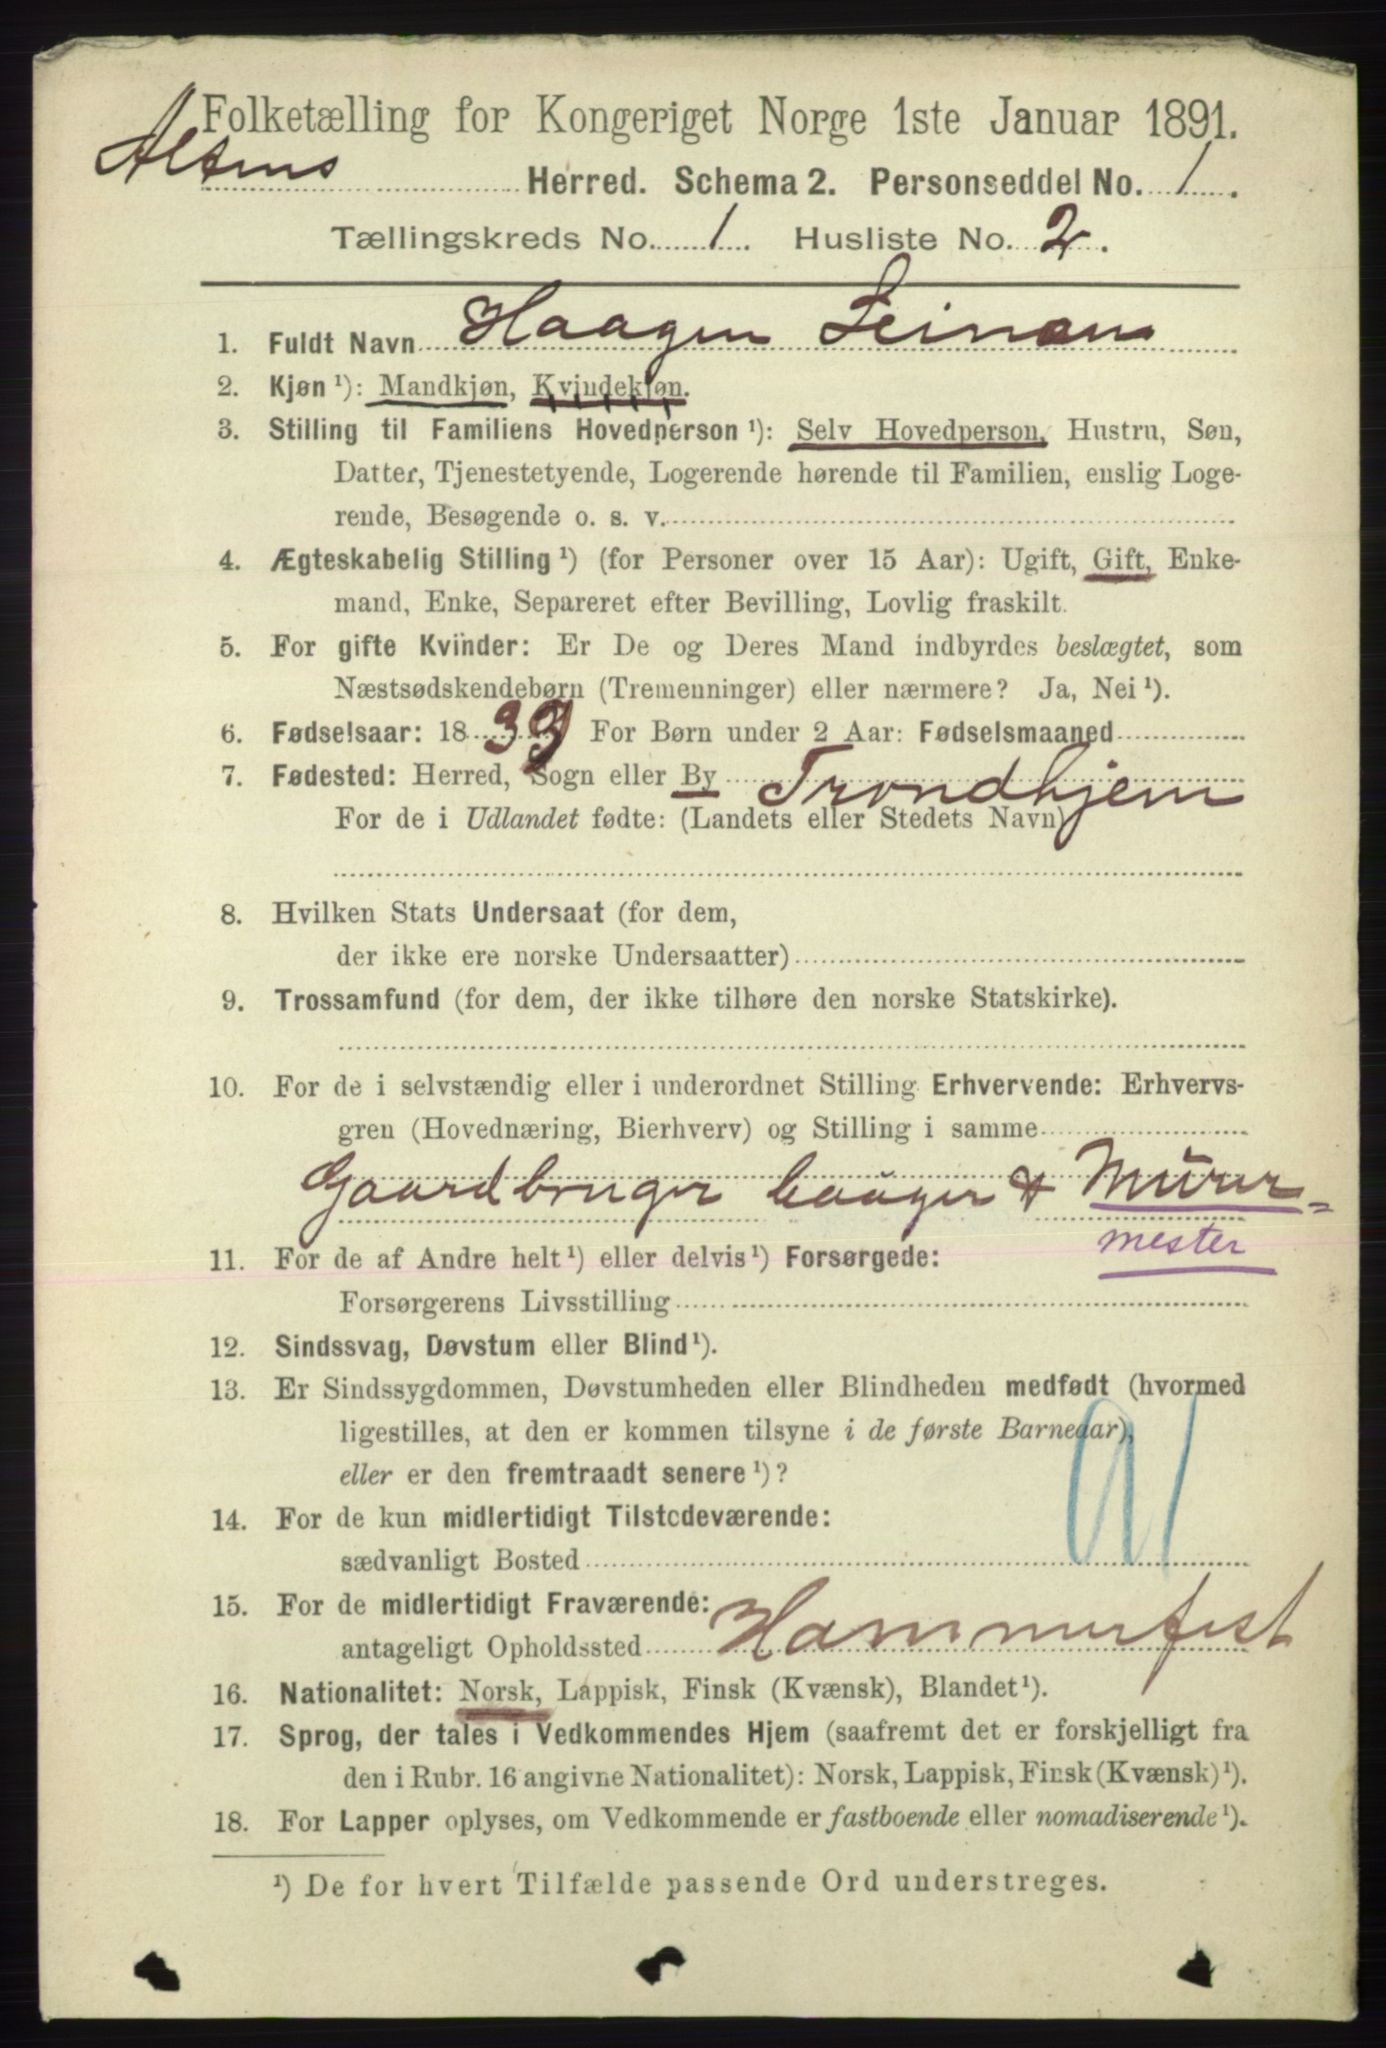 Folketælling for Kongeriget Norge 1ste Januar 1891.
Altens Herred. Schema 2. Personseddel No. 1.
Tællingskreds No. 1. Husliste No. 2.
1. Fuldt Navn Haagen Leinan
2. Kjøn ¹): Mandkjøn, Kvindekjøn.
3. Stilling til Familiens Hovedperson ¹): Selv Hovedperson, Hustru, Søn,
Datter, Tjenestetyende, Logerende hørende til Familien, enslig Loge-
rende, Besøgende o. s. v.
4. Ægteskabelig Stilling ¹) (for Personer over 15 Aar): Ugift, Gift, Enke-
mand, Enke, Separeret efter Bevilling, Lovlig fraskilt.
5. For gifte Kvinder: Er De og Deres Mand indbyrdes beslægtet, som
Næstsødskendebørn (Tremenninger) eller nærmere? Ja, Nei ¹).
6. Fødselsaar: 1839 For Børn under 2 Aar: Fødselsmaaned
7. Fødested: Herred, Sogn eller By Trondhjem
For de i Udlandet fødte: (Landets eller Stedets Navn)
8. Hvilken Stats Undersaat (for dem,
der ikke ere norske Undersaatter)
9. Trossamfund (for dem, der ikke tilhøre den norske Statskirke).
10. For de i selvstændig eller i underordnet Stilling Erhvervende: Erhvervs-
gren (Hovednæring, Bierhverv) og Stilling i samme
Gaardbruger & Murer=
mester
11. For de af Andre helt ¹) eller delvis ¹) Forsørgede:
Forsørgerens Livsstilling
12. Sindssvag, Døvstum eller Blind ¹).
13. Er Sindssygdommen, Døvstumheden eller Blindheden medfødt (hvormed
ligestilles, at den er kommen tilsyne i de første Barneaar),
eller er den fremtraadt senere ¹)?
14. For de kun midlertidigt Tilstedeværende:
sædvanligt Bosted
15. For de midlertidigt Fraværende:
antageligt Opholdssted Hammerfest
16. Nationalitet: Norsk, Lappisk, Finsk (Kvænsk), Blandet ¹).
17. Sprog, der tales i Vedkommendes Hjem (saafremt det er forskjelligt fra
den i Rubr. 16 angivne Nationalitet): Norsk, Lappisk, Finsk (Kvænsk) ¹).
18. For Lapper oplyses, om Vedkommende er fastboende eller nomadiserende ¹).
¹) De for hvert Tilfælde passende Ord understreges.